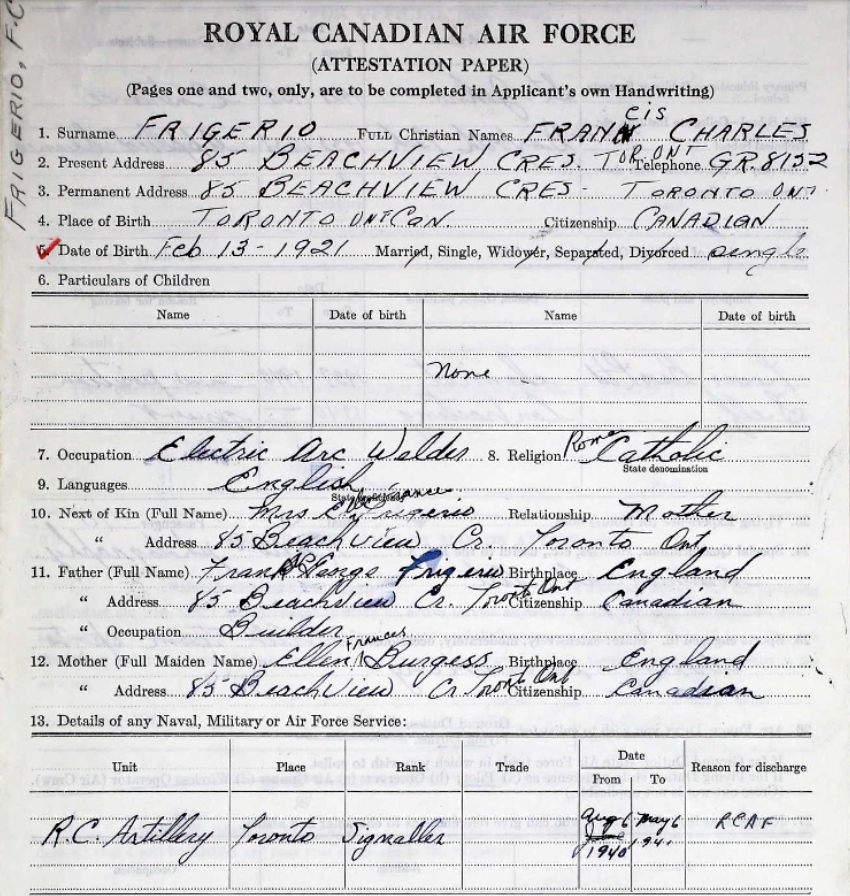 FRIGERIO, F.C
ROYAL CANADIAN AIR FORCE
(ATTESTATION PAPER)
(Pages one and two, only, are to be completed in Applicant's own Handwriting)
1. Surname FRIGERIO FULL Christian Names FRANCIS CHARLES
2. Present Address 85 BEACHVIEW CRES. TOR. ONT Telephone GR. 8152
3. Permanent Address 85 BEACHVIEW CRES- TORONTO ONT.
4. Place of Birth TORONTO ONT CAN. Citizenship CANADIAN
5. Date of Birth Feb 13-1921 Married, Single, Widower, Separated, Divorced single
6. Particulars of Children
Name Date of birth Name Date of birth
None
7. Occupation Electric Arc Welder 8. Religion Roman Catholic
State denomination
9. Languages English
10. Next of Kin (Full Name) Mrs Frigerio Relationship Mother
" Address 85 Beachview Cr. Toronto Ont
11. Father (Full Name) Frank George Frigerio Birthplace England
" Address 85 Beachview Cr. Toronto Ont Citizenship Canadian
" Occupation Builder
12. Mother (Full Maiden Name) Ellen Frances Burgess Birthplace England
" Address 85 Beachview Cr Toronto Ont Citizenship Canadian
13. Details of any Naval, Military or Air Force Service:
Unit Place Rank Trade Date From To Reason for discharge
R.C. Artillery Toronto Signaller Aug 6 1940 May 6 1941 RCAF